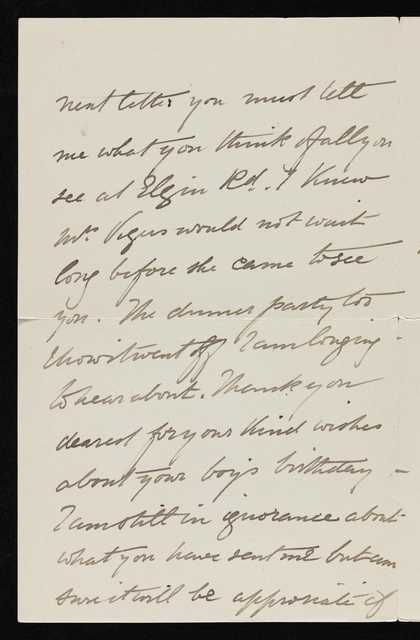 next letter you must tell
me what you think of all you
see at Elgin Rd. I knew
Mrs Vigers would not wait
long before she came to see
you. The dinner party too
& how it went off I am longing
to hear about. Thank you
dearest for your kind wishes
about your boy's birthday –
I am still in ignorance about
what you have sent me but am
sure it will be approriate if